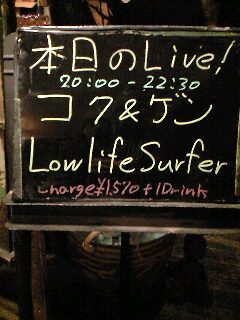 本日のLive!
20:00-22:30
コク&ゲン
Lowlife Surfer
charge¥1,570+1Drink